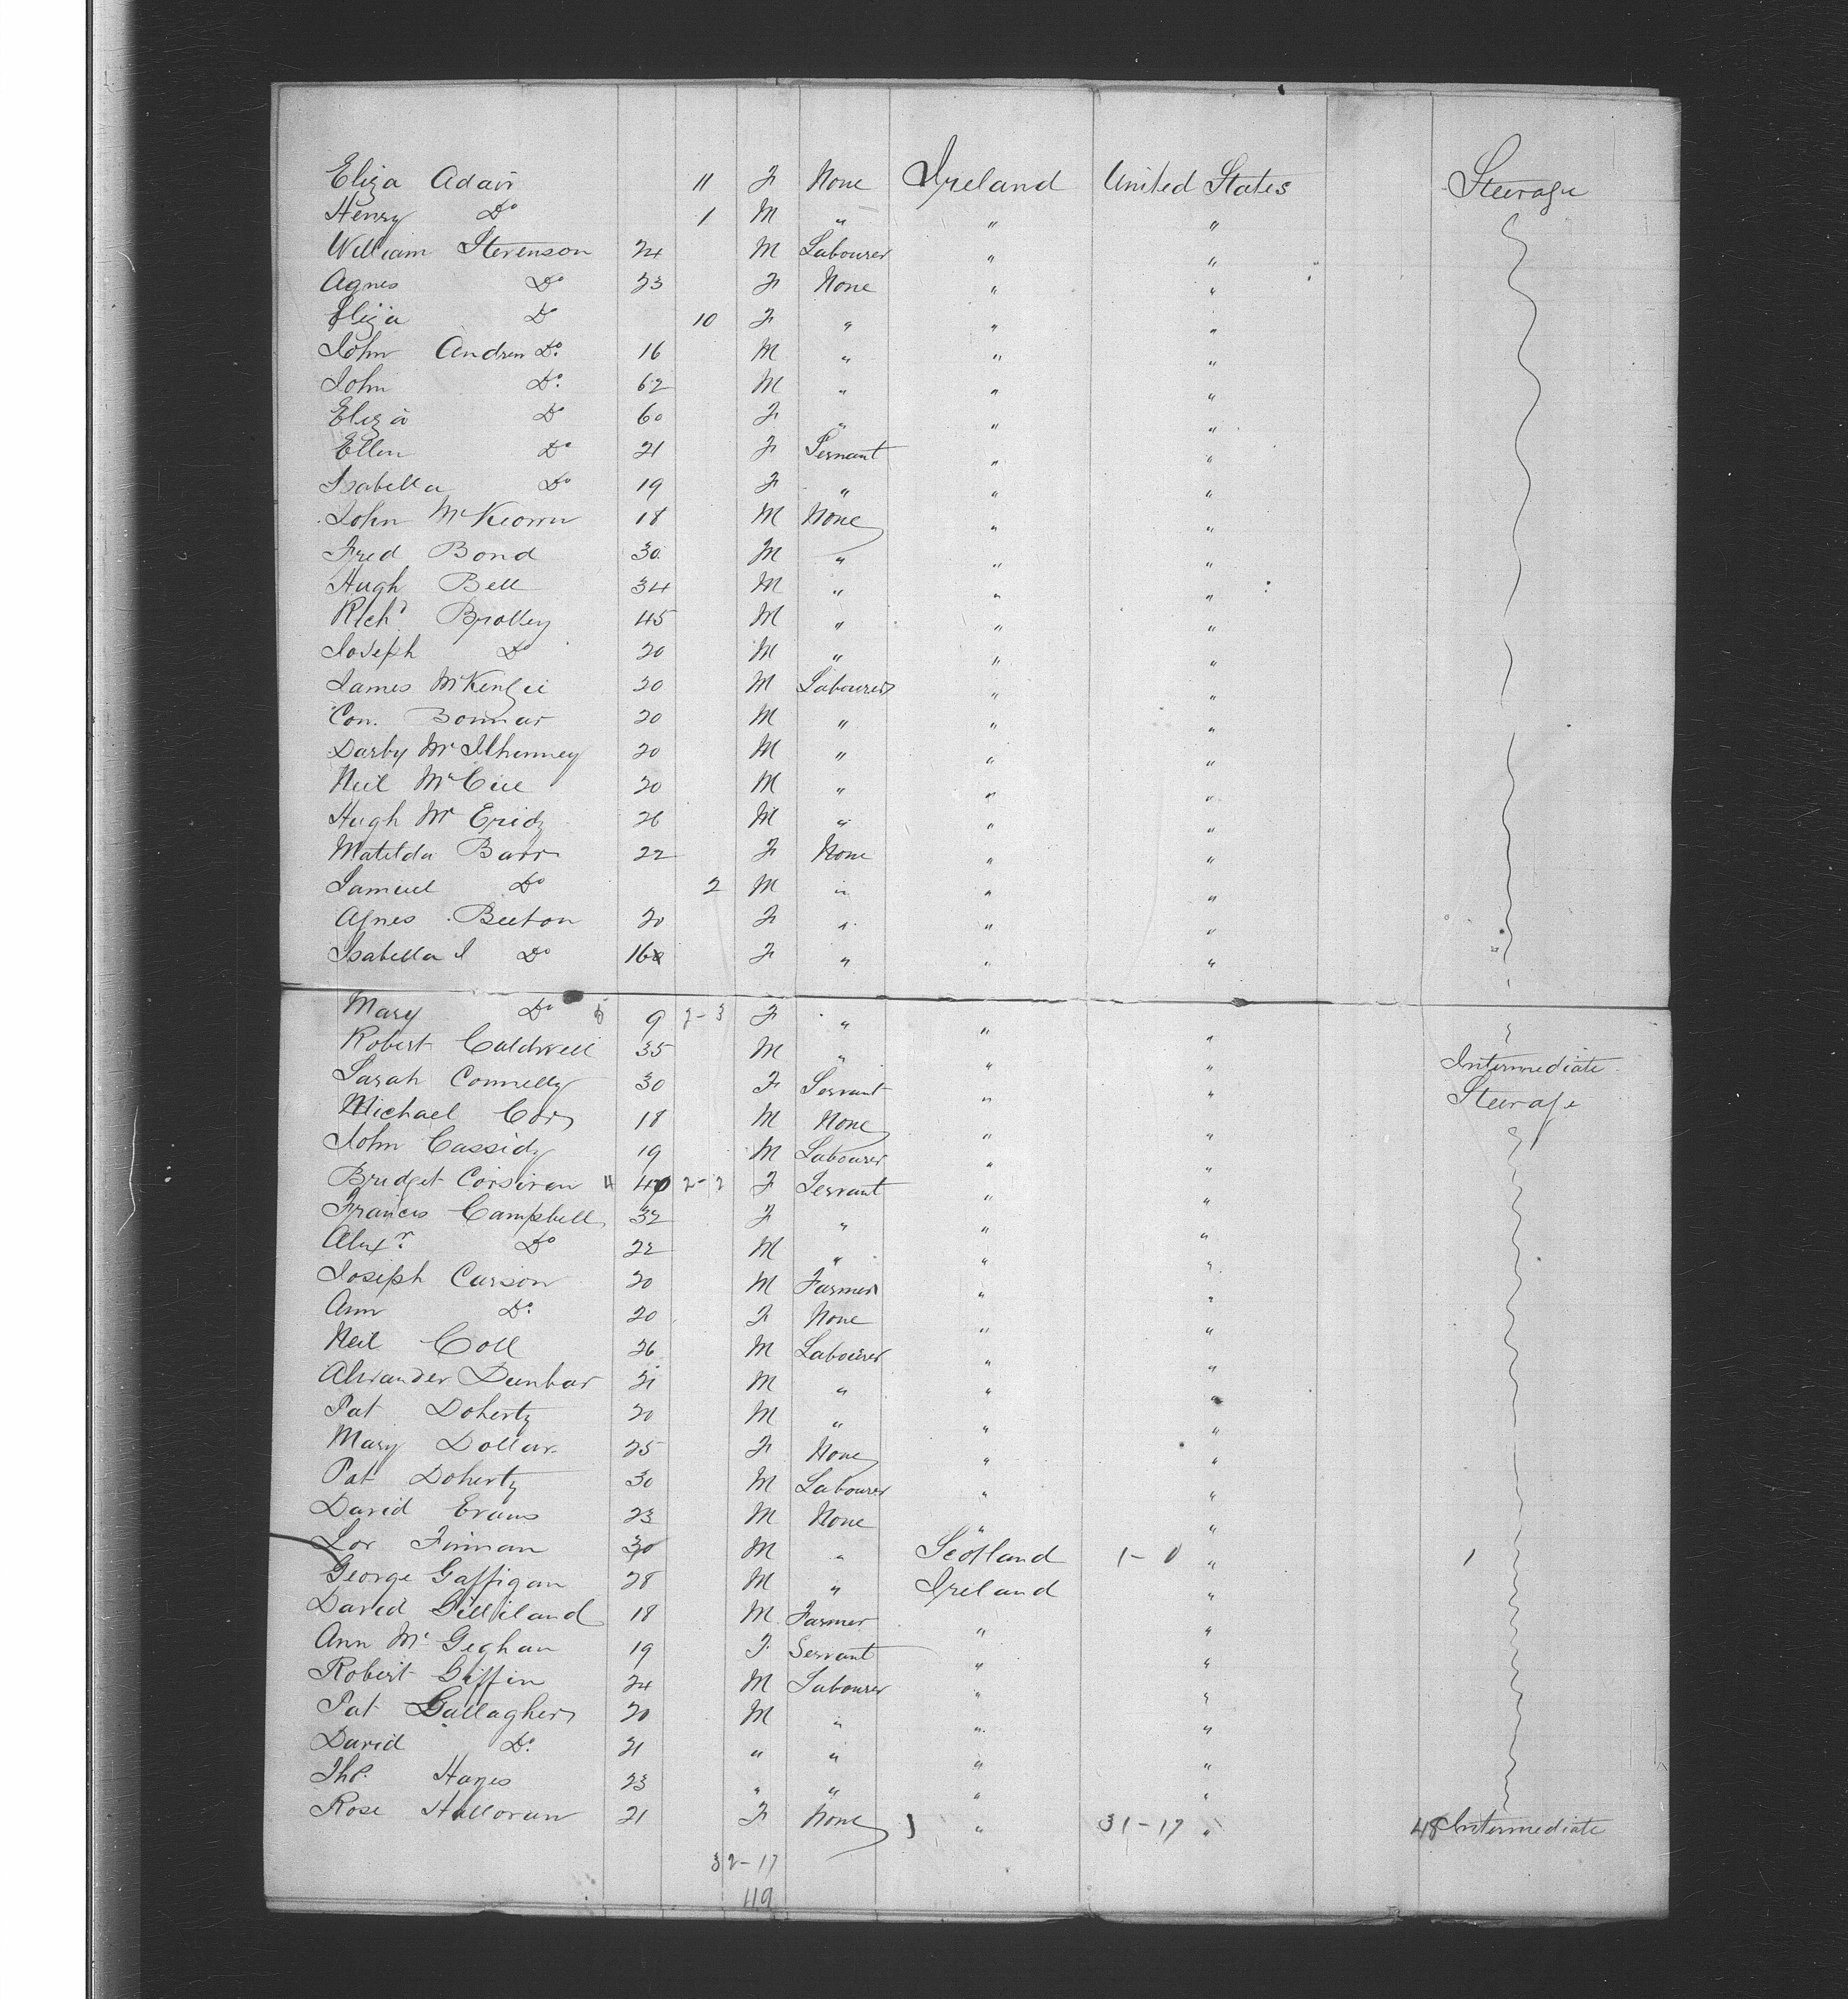 Eliza Adair 11 F None Ireland United States Steerage
Henry Do 1 M " " "
William Stevenson 24 M Labourer " "
Agnes Do 23 F None " "
Eliza Do 10 F " " "
John Andrew Do 16 M " " "
John Do 62 M " " "
Eliza Do 60 F " " "
Ellen Do 21 F Servant " "
Isabella Do 19 F " " "
John McKeown 18 M None " "
Fred Bond 30 M " " "
Hugh Bell 34 M " " "
Richd Brolley 45 M " " "
Joseph Do 20 M " " "
James McKenzie 20 M Labourer " "
Con. Bonnar 20 M " " "
Darby McIlhenney 20 M " " "
Neil McCue 20 M " " "
Hugh 26 M " " "
Matilda Barr 22 F None " "
Samuel Do 2 M " " "
Agnes Beeton 20 F " " "
Isabella J Do 16 F " " "
Mary Do 9 2-3 F " " "
Robert Caldwell 35 M " " " Intermediate
Sarah Connelly 30 F Servant " " Steerage
Michael 18 M None " "
John Cassidy 19 M Labourer " "
Bridget Corsivan 4 40 2-2 F Servant " "
Francis Campbell 32 F " " "
Alexr. Do 22 M " " "
Joseph Carson 20 M Farmer " "
Ann Do 20 F None " "
Neil Coll 26 M Labourer " "
Alexander Dunbar 21 M " " "
Pat Doherty 20 M " " "
Mary Dollar 25 F None " "
Pat Doherty 30 M Labourer " "
David Evans 23 M None " "
Finnan 30 M " Scotland 1-0 " 1
George Gaffigan 28 M " Ireland "
David Gilliland 18 M Farmer " "
Ann McGeghan 19 F Servant " "
Robert Giffin 24 M Labourer " "
Pat Gallagher 20 M " " "
David Do 21 " " " "
Tho. Hayes 23 " " " "
Rose Halloran 21 F None " 31-17 " 48 Intermediate
32-17
119